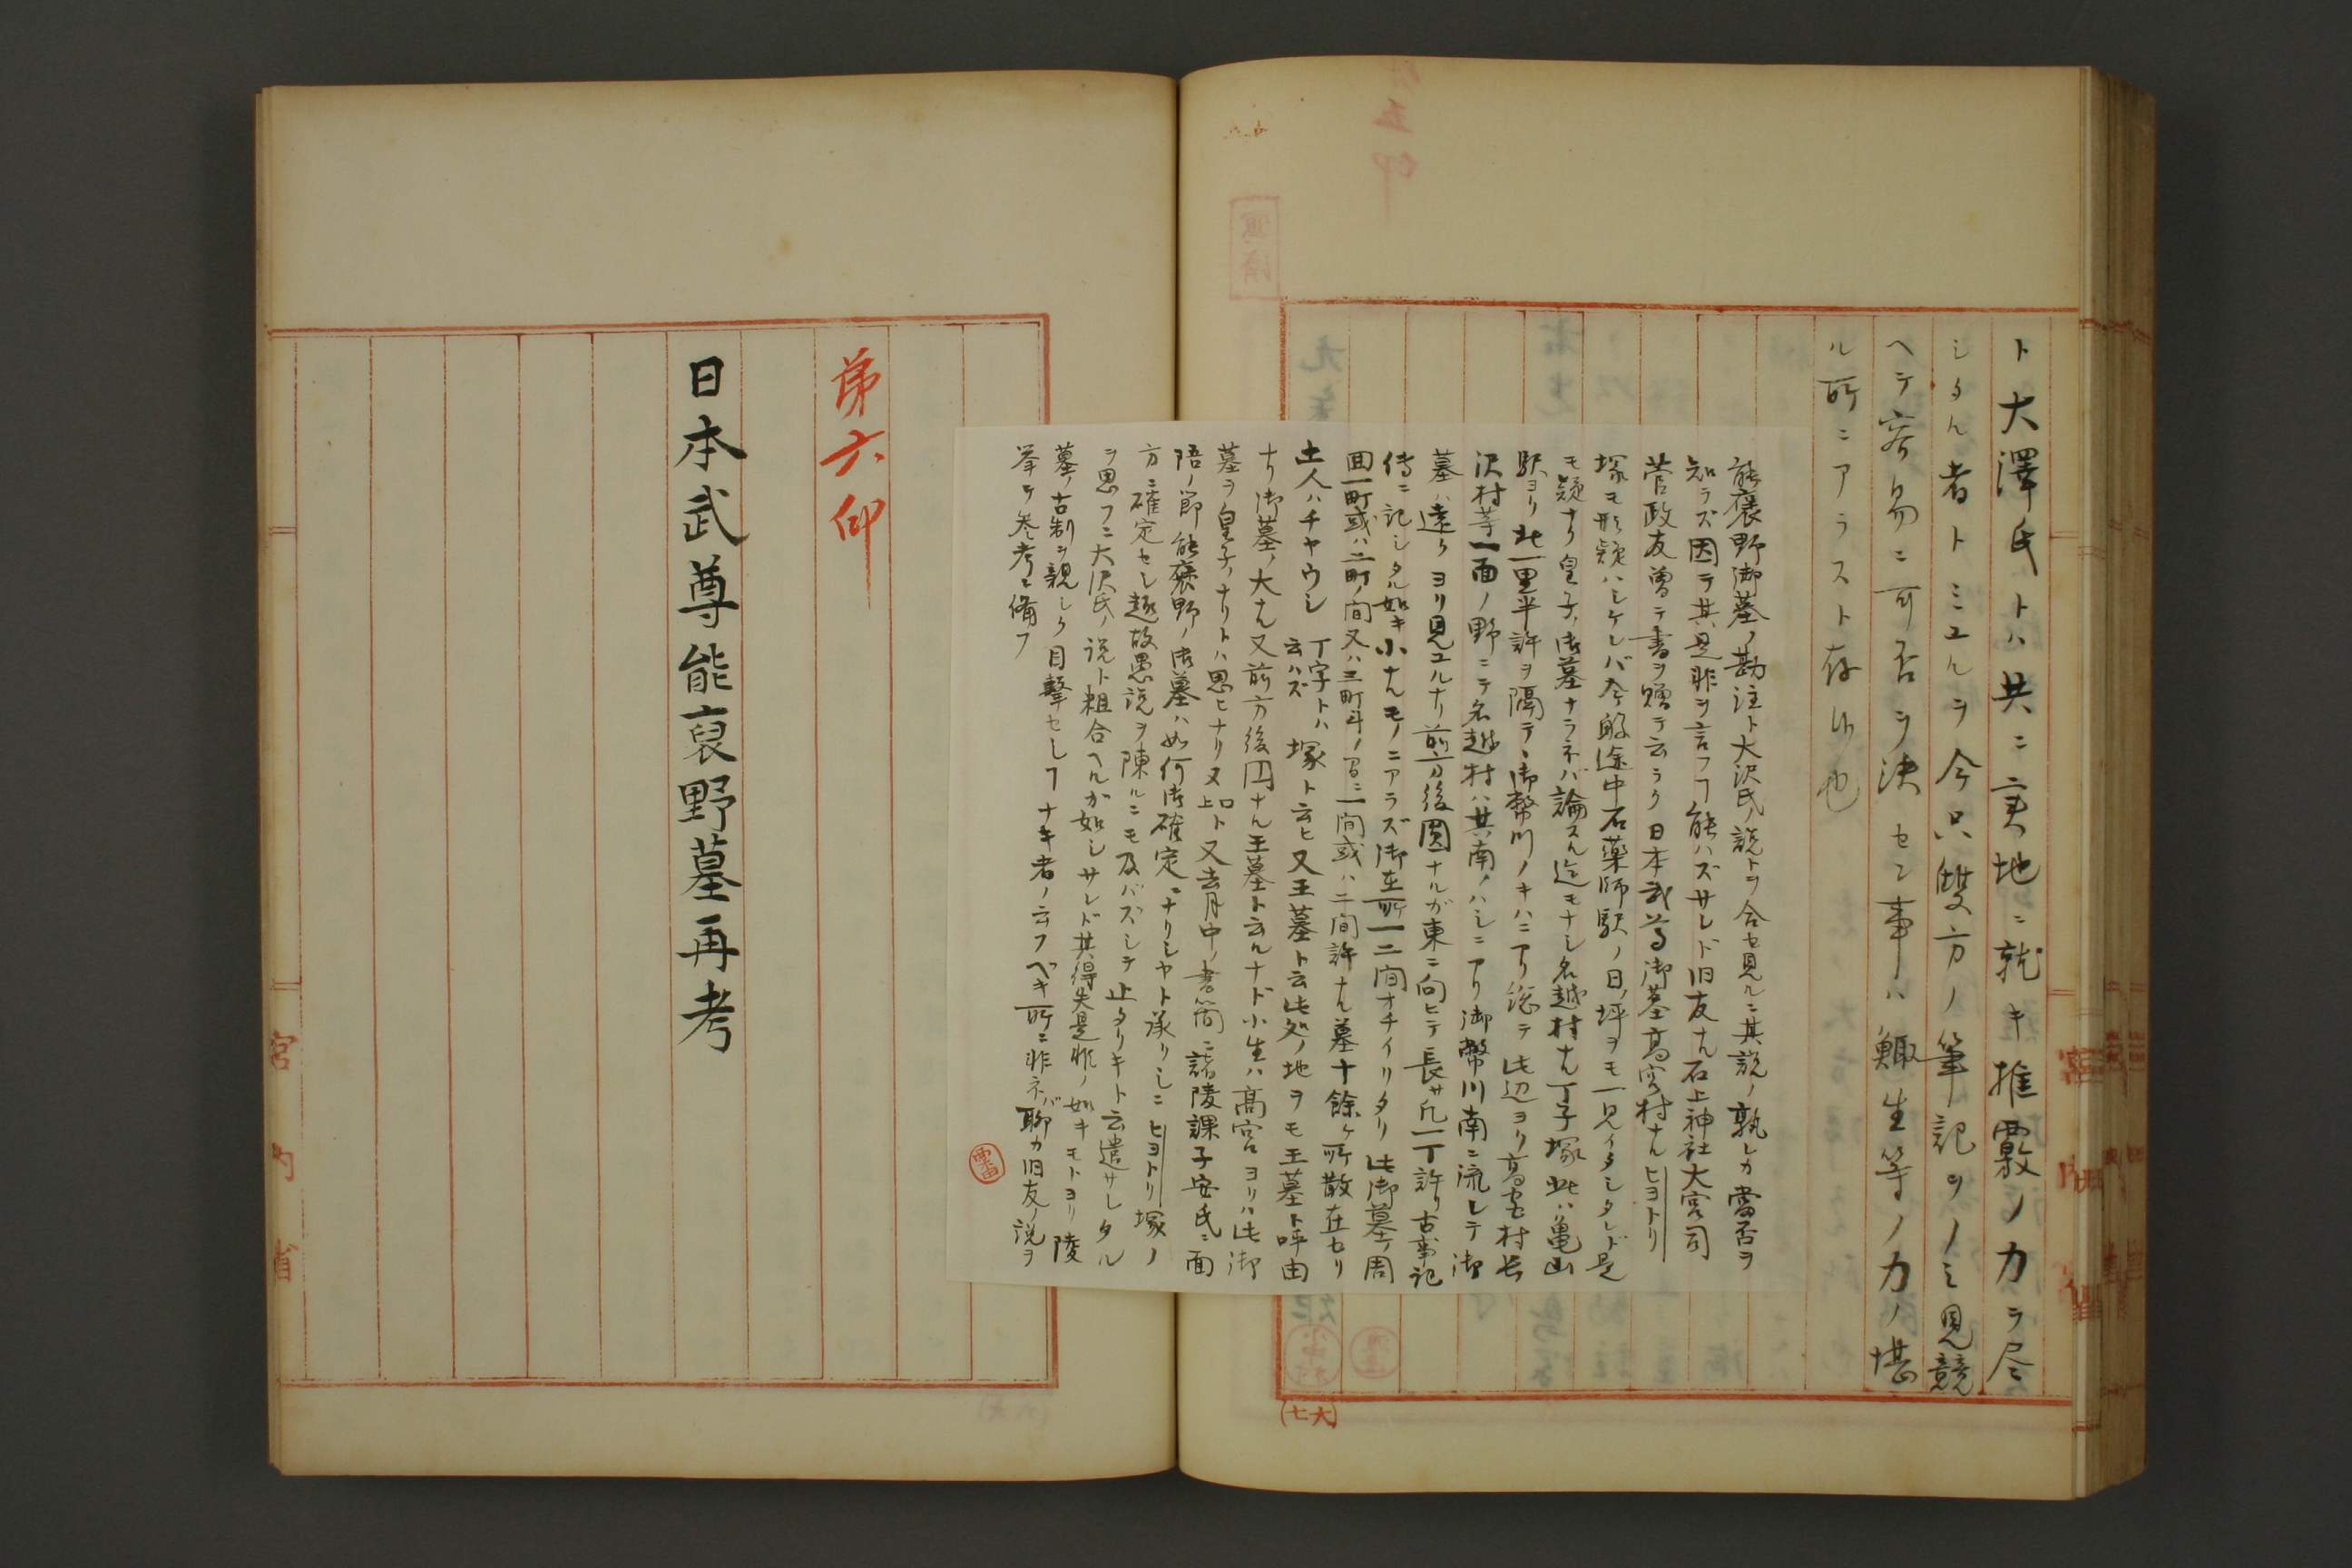 ト大澤氏トハ共ニ実地ニ就キ推覈ノ力ヲ尽
シタル者トミエルヲ今只雙方ノ筆記ヲノミ見競
ヘテ容易ニ可否ヲ決セン事ハ鯫生等ノ力ノ堪
ル所ニアラスト存候也
能褒野御墓ノ勘注ト大沢氏ノ説トヲ合セ見ルニ其説ノ孰レカ当否ヲ
知ラズ因テ其是非ヲ言フ丁能ハズサレド旧友ナル石上神社大宮司
菅政友曽テ書ヲ贈テ云ラク日本武尊御墓高宮村ナルヒヨトリ
塚モ形疑ハシケレバ今般途中石薬師駅ノ日ノ坪ヲモ一見イタシタレド是
モ疑ナク皇子ノ御墓ナラネバ論スル迄モナシ名越村ナル丁子塚此ハ亀山
駅ヨリ北一里半許ヲ隔テヽ御幣川ノキハニアリ総テ此辺ヨリ高宮村長
沢村等一面ノ野ニテ名越村ハ其南ノハシニアリ御幣川南ニ流レテ御
墓ハ遠クヨリ見エルナリ前方後圓ナルガ東ニ向ヒテ長サ凡一丁許リ古事記
傳ニ記シタル如キ小ナルモノニアラズ御在所一二間オチイリタリ此御墓ノ周
囬一町或ハ二町ノ間又ハ三町斗ノ間ニ一間或ハ二間許ナル墓十餘ヶ所散在セリ
土人ハチヤウシ 丁字トハ云ハズ 塚ト云ヒ又王墓ト云此処ノ地ヲモ王墓ト呼由
ナリ御墓ノ大ナル又前方後円ナル王墓ト云ルナド小生ハ高宮ヨリハ此御
墓ヲ皇子ノナリトハ思ヒナリヌ 上口ト又去月中ノ書簡ニ諸陵課子安氏ニ面
陪ノ節能褒野ノ御墓ハ如何御確定ニナリシヤト承リシニヒヨトリ塚ノ
方ニ確定セシ趣故愚説ヲ陳ルニモ及バズシテ止タリキト云遣サレタル
ヲ思フニ大沢氏ノ説ト粗合ヘルガ如シサレド其得失是非ノ如キモトヨリ陵
墓ノ古制ヲ親シク目撃セシ丁ナキ者ノ云フベキ所ニ非ネバ聊カ旧友ノ説ヲ
挙テ参考ニ備フ
(六七)
第六印
日本武尊能裒野墓再考
宮内省